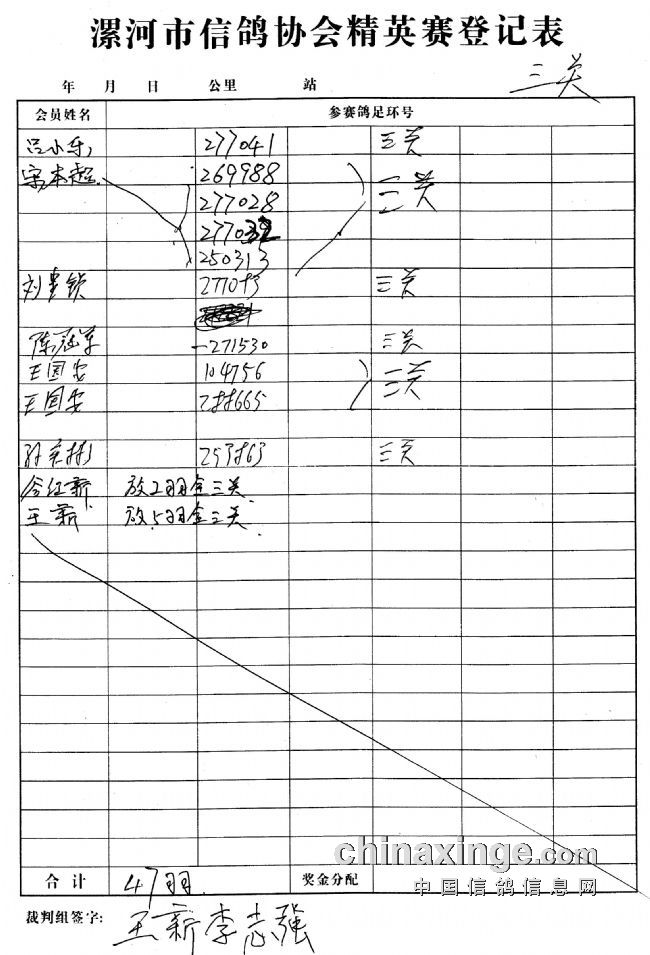 漯河市信鸽协会精英赛登记表
年 月 日 公里 站 三关
会员姓名 参赛鸽足环号
吕小乐 277041 三关
宋本超 269988
277028 三关
277032
250313
刘 锁 277083 三关
陈冠军 271530 三关
王国安 104756 三关
王国安 288665
孙 彬 253863 三关
红新 放2羽全三关
王新 放5羽全三关
合计 47羽 奖金分配
裁判组签字: 王新 李志强
chinaxinge.com
中国信鸽信息网